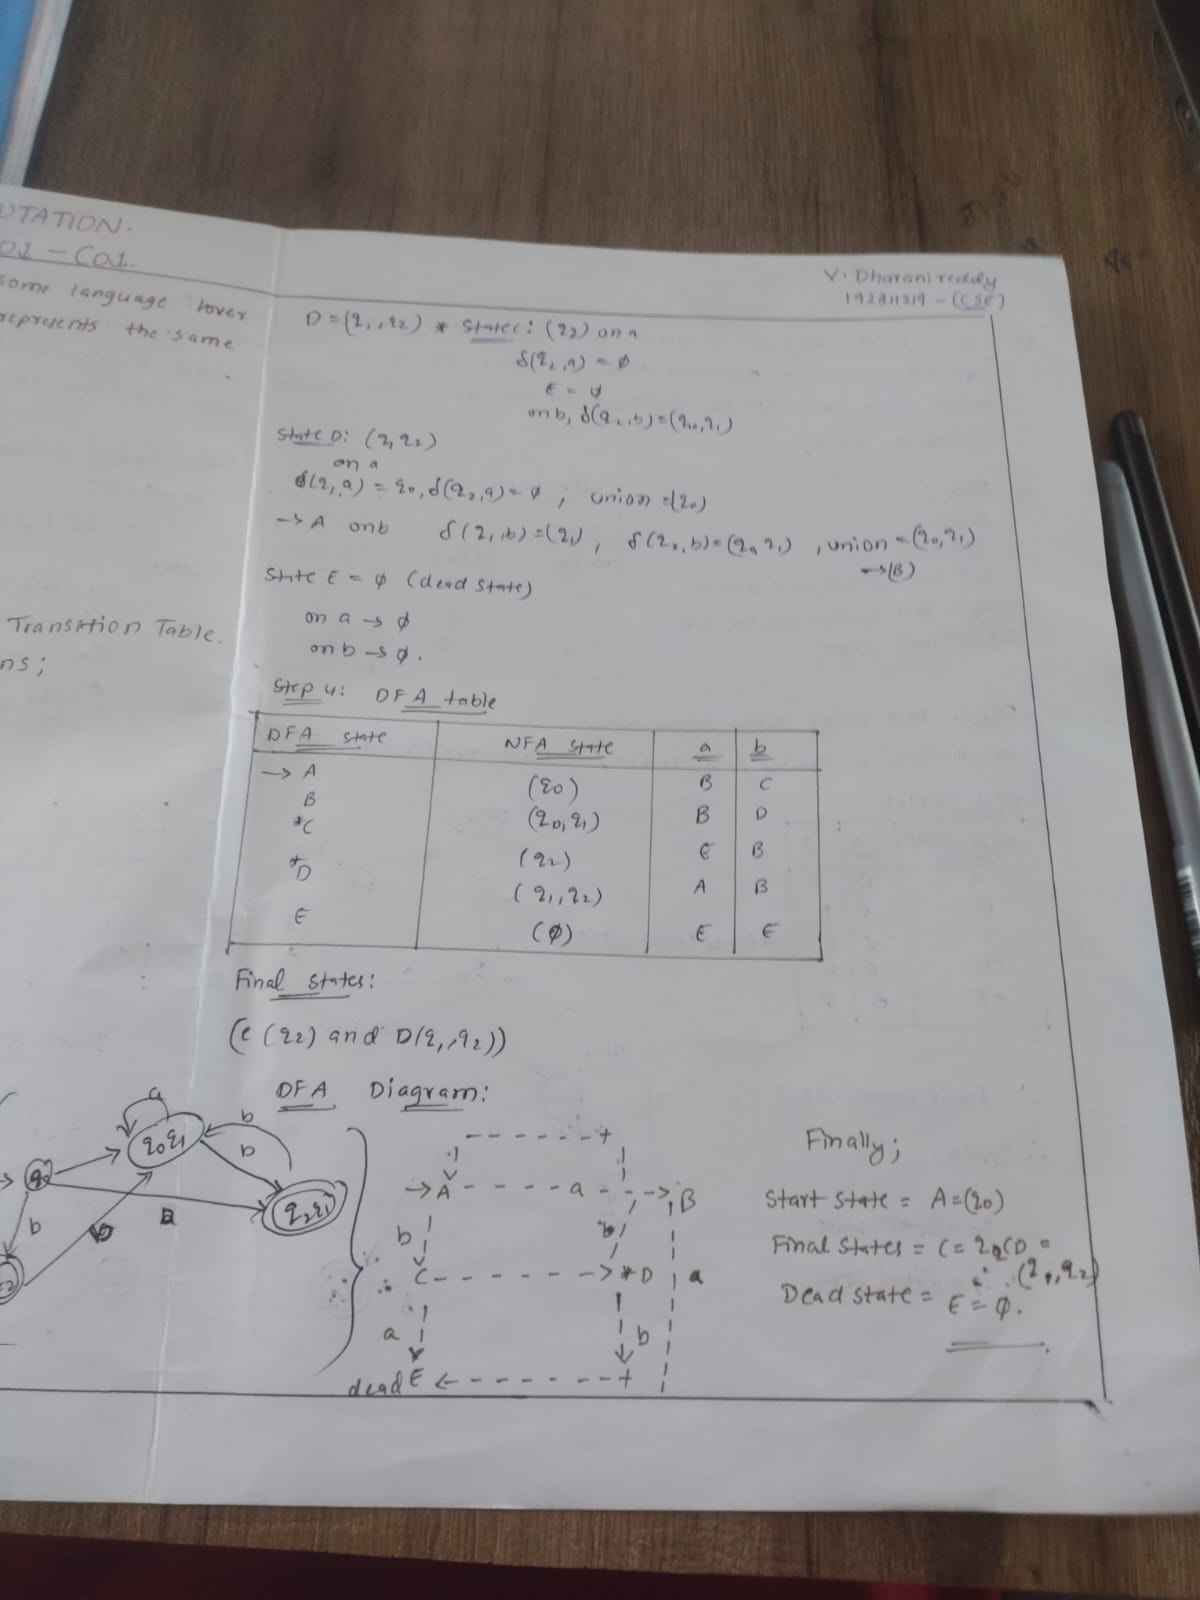 UTATION.
01 - CO1.
some language over
represents the same
Transition Table.
ns;
V. Dharani reddy
192811219 - (CSE)
D = (q1, q2) * States: (q2) on a
δ(q2, a) = ϕ
E = ϕ
on b, δ(q2, b) = (q0, q1)
State D: (q, q2)
on a
δ(q, a) = q0, δ(q2, a) = ϕ , union = (q0)
→ A on b δ(q1, b) = (q1) , δ(q2, b) = (q0 q1) , union = (q0, q1)
→ (B)
State E = ϕ (dead state)
on a → ϕ
on b → ϕ.
Step 4: DFA table
DFA state NFA state a b
→ A (q0) B C
B (q0, q1) B D
*C (q2) E B
*D (q1, q2) A B
E (ϕ) E E
Final states:
(C (q2) and D(q1, q2))
DFA Diagram:
a
q0q1
b
b
q0
b
b
a
q2q1
→ A a B
b b
C * D a
a b
dead E
Finally;
Start state = A = (q0)
Final states = C = q2 (D =
(q1, q2)
Dead state = E = ϕ.